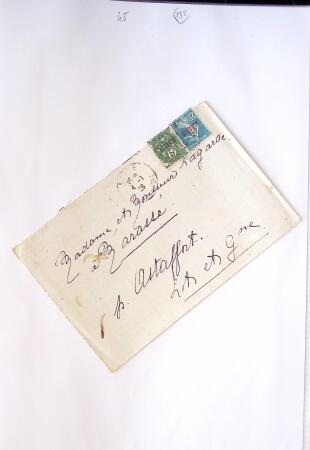 45 138
Madame et Monsieur Lagarde
à Barasse,
p. Astaffort.
Lt et Gne